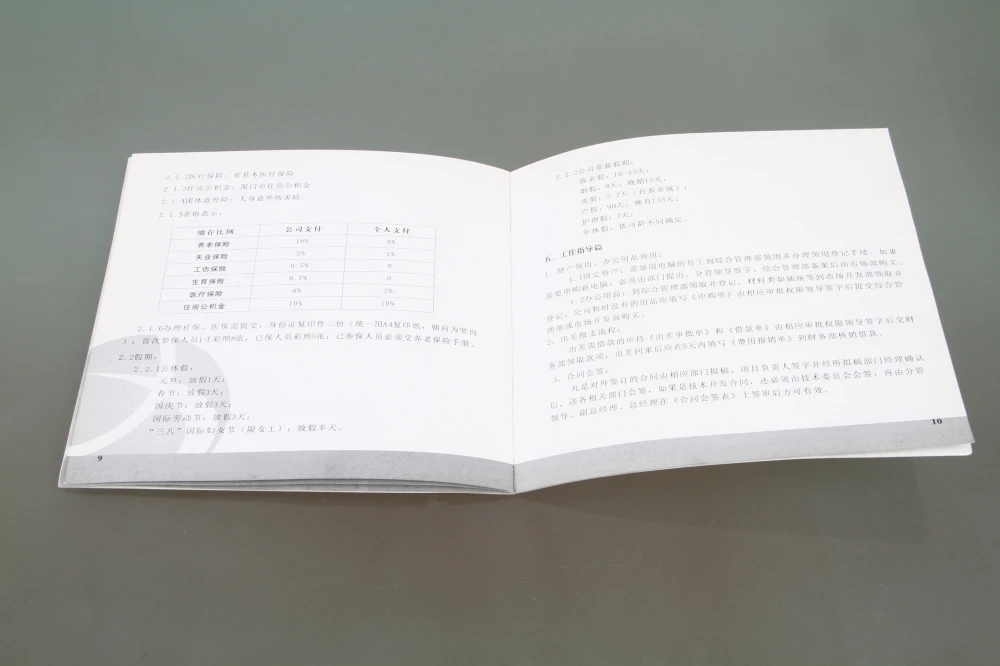 2.1.2医疗保险：省基本医疗保险
2.1.3住房公积金：厦门市住房公积金
2.1.4团体意外险：人身意外伤害险
2.1.5表格表示：
缴存比例 公司支付 个人支付
养老保险 18% 8%
失业保险 2% 1%
工伤保险 0.5% 0
生育保险 0.7% 0
医疗保险 8% 2%
住房公积金 10% 10%
2.1.6办理社保、医保需提交：身份证复印件二份（统一用A4复印纸，朝向为竖向
）；首次参保人员1寸彩照8张，已保人员彩照5张；已参保人员必须交养老保险手册。
2.2假期：
2.2.1公休假：
元旦：放假1天；
春节：放假3天；
国庆节：放假3天；
国际劳动节：放假3天；
“三八”国际妇女节（限女工）：放假半天。
9
2.2.2公司带薪假期。
探亲假：10-15天；
婚假：8天，晚婚15天；
丧假：5-7天（直系亲属）；
产假：90天，晚育135天；
护理假：7天；
年休假：依司龄不同确定。
五、工作指导篇
1、财产领用、办公用品领用：
1.1固定资产：需领用电脑的员工到综合管理部领用并办理领用登记手续。如果
需要申购新电脑，必须由部门提出，分管领导签字，综合管理部备案后由市场部购买。
1.2办公用品：到综合管理部领取并登记，材料类如插座等到市场开发部领取并
登记，公司暂时没有的用品应填写《申购单》由相应审批权限领导签字后提交综合管
理部或市场开发部购买。
2、出差报支流程：
出差需借款的应持《出差审批单》和《借款单》由相应审批权限领导签字后交财
务部领取款项，出差回来后应在5天内填写《费用报销单》到财务部核销借款。
3、合同会签：
凡是对外签订的合同由相应部门拟稿、项目负责人签字并经所拟稿部门经理确认
后，送各相关部门会签，如果是技术开发合同，还必须由技术委员会会签，再由分管
领导、副总经理、总经理在《合同会签表》上签审后方可有效。
10